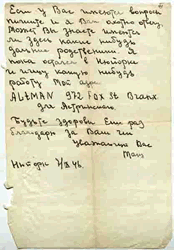 Если у Вас имеются вопросы
пишите и я Вам охотно отвечу.
Может Вы знаете имеются
ли здесь какие нибудь
дальние родственники. Я
пока остался в Нюйорке
и ищу какую нибудь
работу. Мой адрес
ALTMAN 972 FOX St Bronx
для
Будьте здоровы Еще раз
благодарю за Ваш
уважающий Вас
Нюйорк